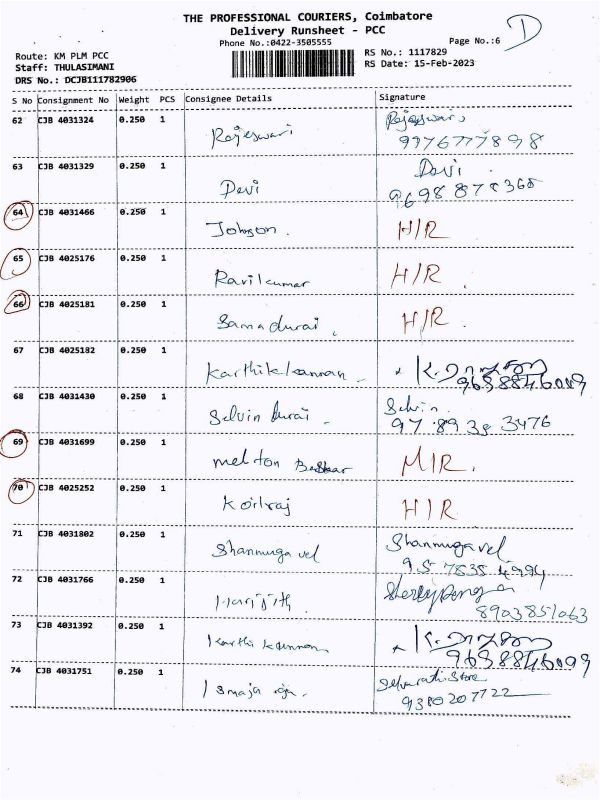 THE PROFESSIONAL COURIERS, Coimbatore
Delivery Runsheet - PCC
Phone No.:0422-3505555
Page No.:6 D
Route: KM PLM PCC
RS No.: 1117829
Staff: THULASIMANI
RS Date: 15-Feb-2023
DRS No.: DCJB111782906
S No Consignment No Weight PCS Consignee Details Signature
62 CJB 4031324 0.250 1 Rajeswari Rajeswari
9976777898
63 CJB 4031329 0.250 1 Devi Devi
9698878368
64 CJB 4031466 0.250 1 Johnson. H/R
65 CJB 4025176 0.250 1 Ravikumar H/R.
66 CJB 4025181 0.250 1 Samadurai. H/R.
67 CJB 4025182 0.250 1 Karthikkannan K.
9638846099
68 CJB 4031430 0.250 1 Selvin durai. Selvin.
97 89 38 3476
69 CJB 4031699 0.250 1 melton Baskar M/R.
70 CJB 4025252 0.250 1 Koilraj H/R.
71 CJB 4031802 0.250 1 Shanmuga vel Shanmugavel
95 7835 4994
72 CJB 4031766 0.250 1 Harijith.
8903851063
73 CJB 4031392 0.250 1 Karthi kannan K.
9638846099
74 CJB 4031751 0.250 1 Ismaja Store
9380207722